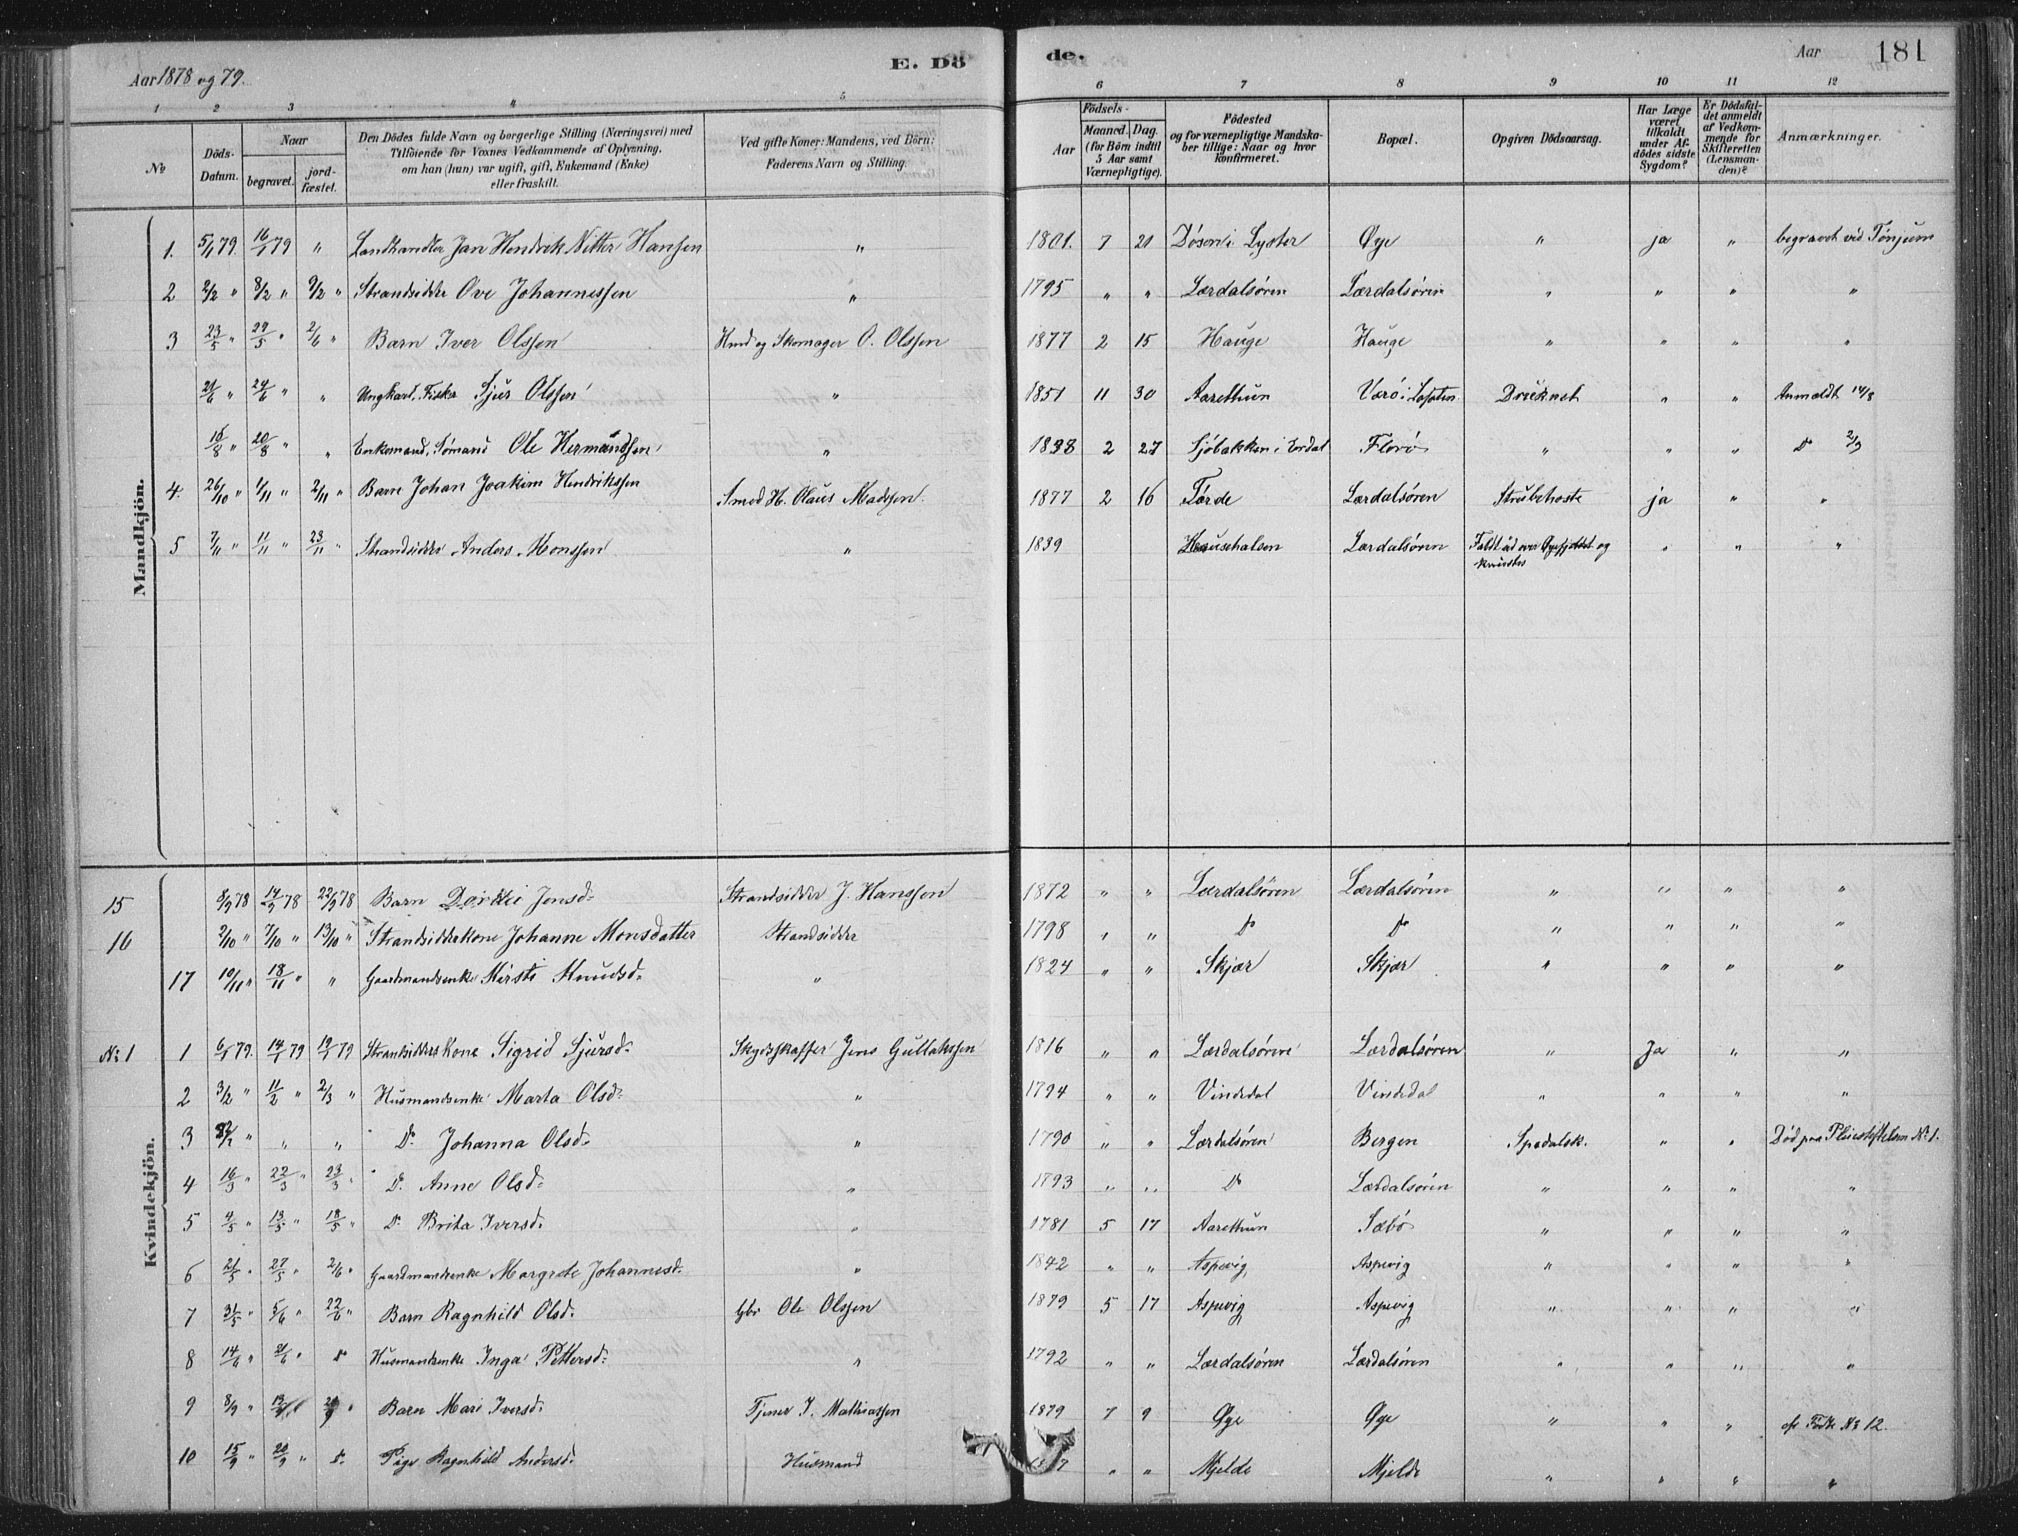 Aar 1878 og 79.
E. Dö
de.
Aar
181
1 2 3 4 5 6 7 8 9 10 11 12
No
Döds-Datum.
Naar
begravet.
jord-fæstet.
Den Dödes fulde Navn og borgerlige Stilling (Næringsvei) med
Tilföiende for Voxnes Vedkommende af Oplysning,
om han (hun) var ugift, gift, Enkemand (Enke)
eller fraskilt.
Ved gifte Koner: Mandens, ved Börn:
Faderens Navn og Stilling.
Födsels-
Aar
Maaned. Dag.
(for Börn indtil
5 Aar samt
Værnepligtige).
Födested
og for værnepligtige Mandska-
ber tillige: Naar og hvor
konfirmeret.
Bopæl.
Opgiven Dödsaarsag.
Har Læge
været
tilkaldt
under Af-
dödes sidste
Sygdom?
Er Dödsfal-
det anmeldt
af Vedkom-
mende for
Skifteretten
(Lensman-
den)?
Anmærkninger.
Mandkjön.
1. 5/1 79. 16/1 79 " Landhandler Jan Hendrik Nitter Hansen " 1801. 7 21 Døsen i Lyster Øye " ja " begravet ved Tønjum
2 2/2 " 8/2 " 9/2 " Strandsidder Ove Johannessen " 1795 " " Lærdalsøren Lærdalsøren " " " "
3 23/5 " 29/5 " 2/6 " Barn Iver Olssen Hmd og Skomager O. Olssen 1877 2 15 Hauge Hauge " " " "
21/6 " 24/6 " " Ungkarl, Fisker Sjur Olssen " 1851 11 30 Aarethun Værø i Lofoten Druknet " " Anmeldt 14/8
18/8 " 20/8 " " Enkemand, Sømand Ole Hermandsen " 1838 2 27 Sjöbakken i Erdal Florø " " " Do 2/9
4. 26/10 " 1/11 " 2/11 " Barn Johan Joakim Hendrikssen Smed H. Olaus Madssen. 1877 2 16 Førde Lærdalsøren Strubehoste ja " "
5 7/11 " 11/11 " 23/11 " Strandsidder Anders Monssen " 1839 Lærdalsøren Faldt ud over Øyefjeldet og
kvæstes " " "
Kvindekjön.
15 8/9 78 14/9 78 22/9 78 Barn Dorthi Jensd: Strandsidder J. Hanssen 1872 " " Lærdalsøren Lærdalsøren " " " "
16 2/10 " 7/10 " 13/10 " Strandsidderkone Johanne Monsdatter Strandsidder 1798 " " Do Do " " " "
17 10/11 " 18/11 " " Gaardmandsenke Kirsti Knudsd: " 1824 " " Skjær Skjær " " " "
No 1 1 6/1 79. 14/1 79 19/1 79 Strandsidderskone Sigrid Sjursd: Skydsskaffer Jens Gullakssen 1816 " " Lærdalsøren Lærdalsøren " Ja " "
2 3/2 " 11/2 " 2/3 " Husmandsenke Marta Olsd: " 1794 " " Vindedal Vindedal " " " "
3 " " " Do Johanna Olsd: " 1790 " " Lærdalsøren Bergen Spedalsk. " " Død paa Pleiestiftelsen No 1.
4 16/3 " 22/3 " 23/3 " Do Anne Olsd: " 1793 " " Do Lærdalsøren " " " "
5 4/5 " 13/5 " 18/5 " Do Brita Iversd: " 1781 5 17 Aarethun Sæbø " " " "
6 21/5 " 27/5 " 2/6 " Gaardmandsenke Margrete Johannesd: " 1842 " " Aspevig Aspevig " " " "
7 31/5 " 5/6 " 22/6 " Barn Ragnhild Olsd: Gbr Ole Olssen 1879 5 17 Aspevig Aspevig " " " "
8 14/6 " 21/6 " Do Husmandsenke Inga Pettersd: " 1792 " " Lærdalsøren Lærdalsøren " " " "
9 8/9 " " Barn Mari Iversd: Tjener I. Mathiassen 1879 7 9 Øye Øye " " " cfr Fødte No 12.
10 15/9 " 20/9 " Do Pige Ragnhild Andersd: Husmand " " Mjelde Mjelde " " " "